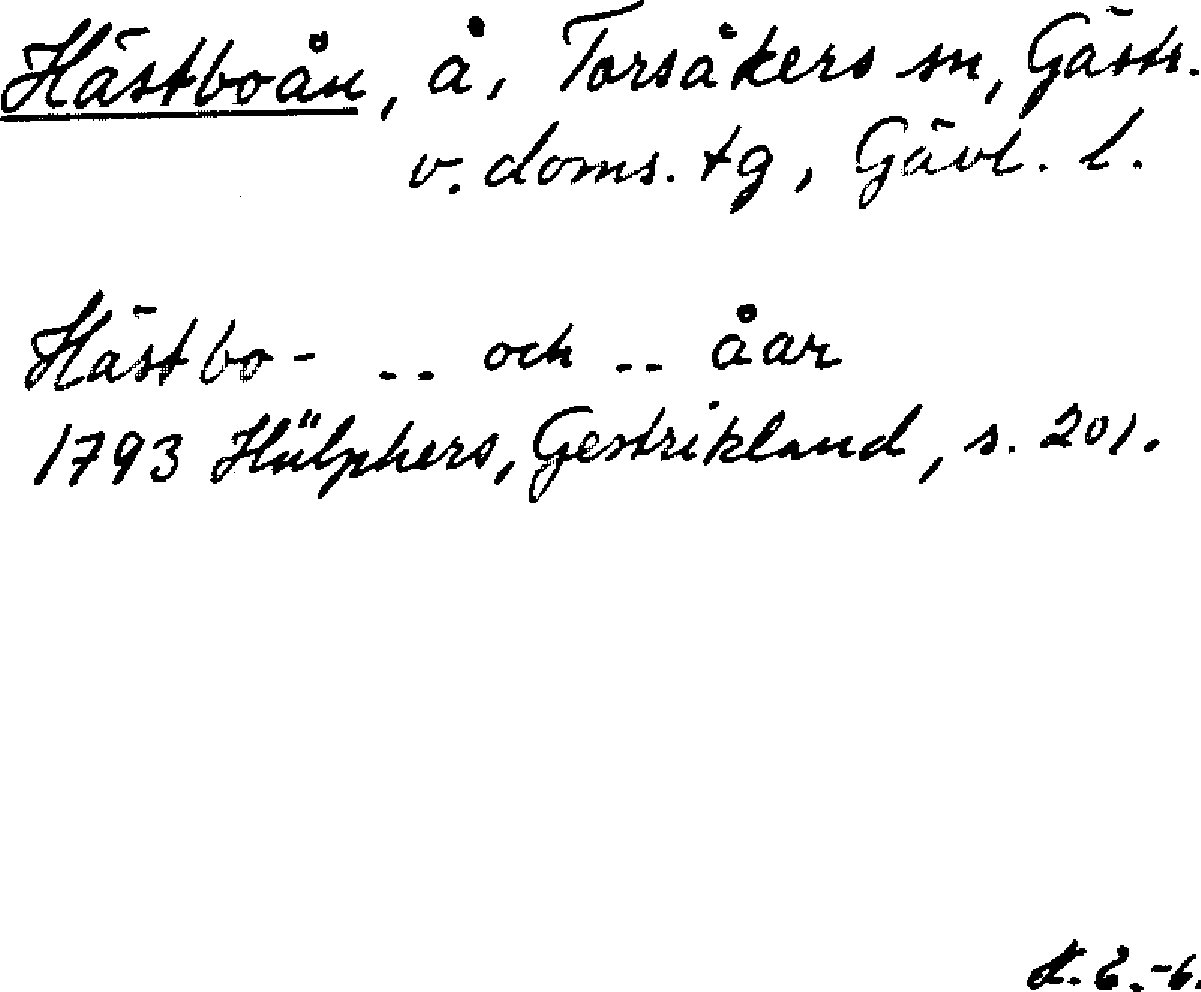 Hästboån, å, Torsåkers sn, Gästr.
v. doms. tg, Gävl. l.
Hästbo- -- och -- åar
1793 Hülphers, Gestrikland, s. 201.